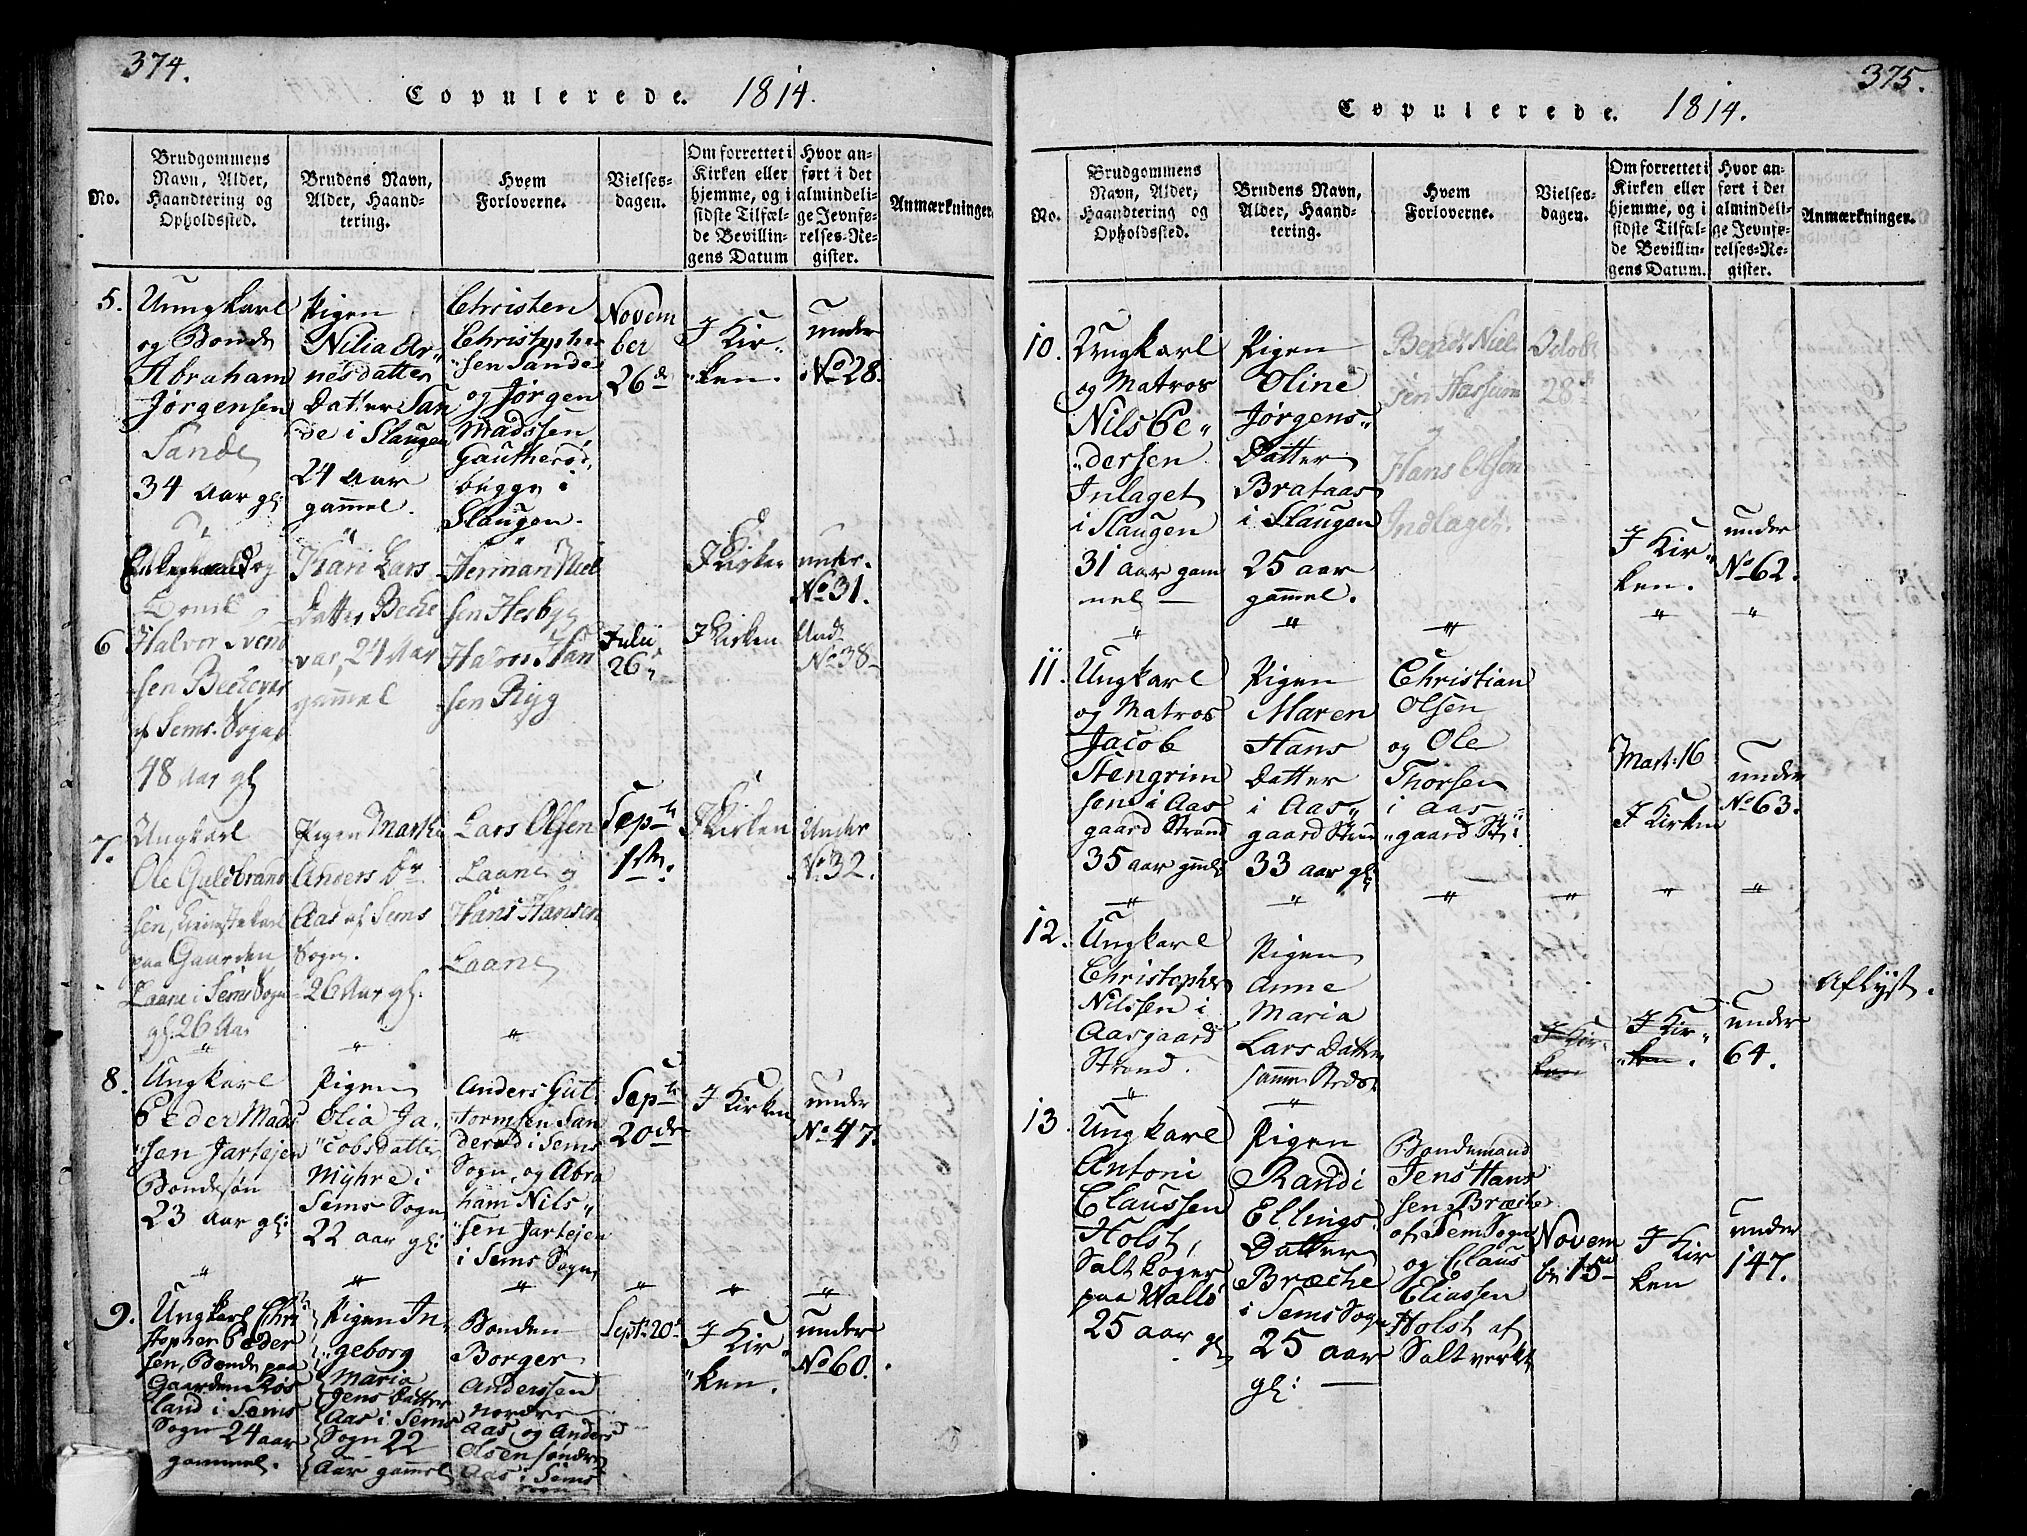 374.
Copulerede. 1814.
No.
Brudgommens
Navn, Alder,
Haandtering og
Opholdssted.
Brudens Navn,
Alder, Haand-
tering.
Hvem
Forloverne.
Vielses-
dagen.
Om forrettet i
Kirken eller
hjemme, og i
sidste Tilfæl-
de Bevillin-
gens Datum
Hvor an-
ført i det
almindeli-
ge Jevnfø-
relses-Re-
gister.
Anmærkninger.
5.
Ungkarl
og Bonde
Abraham
Jørgensen
Sande
34 Aar gl:
Pigen
Nilia Ar-
nesdatter
Datter San
de i Slaugen
24 Aar
gammel.
Christen
Christopher
sen Sande
og Jørgen
Madssen
Gautherød,
begge i
Slaugen.
Novem
ber
26de
I Kir-
ken.
under
No 28.
6
Enkemand og
Halvor Svend
sen Bechevar
af Sems Sogn
48 Aar gl
Kari Lars
Datter Beche
var, 24 Aar
gammel
Herman Niel
sen Hesby
Haavor Han
sen Ryg
Julii
26
I Kirken
under
No 31.
I Kirken
Und
No 38
7.
Ungkarl
Ole Guldbrand
sen, tienistekarl
paa Gaarden
Laane i Sems Sogn
gl. 26 Aar
Pigen Marthe
Anders Dr
Aas af Sems
Sogn.
26 Aar gl.
Lars Olsen
Laane og
Hans Hansen
Laane
Septr
1ste
I Kirken
Under
No 32.
8.
Ungkarl
Peder Mads
sen Jartejen
Bondesøn
23 aar gl:
Pigen
Olia Ja-
cobsdatter
Myhre i
Sems Sogn
22 aar gl:
Anders Gut
tormsen San
derød i Sems
Sogn, og Abra
ham Nils-
sen Jartejen
i Sems Sogn
Septr
20de
I Kirken
under
No 47.
9.
Ungkarl Chri
stopher Peder
sen, Bonde paa
Gaarden Røs
land i Sems
Sogn 24 aar
gammel.
Pigen In-
geborg
Maria
Jens Datter
Aas i Sems
Sogn 22
Aar gammel
Bonden
Borger
Anderssen
nordre
Aas, og Anders
Olsen søndre
Aas i Sems
Sogn
Septr 20de
I Kir-
ken.
under
No 60.
375.
Copulerede. 1814.
No.
Brudgommens
Navn, Alder,
Haandtering og
Opholdssted.
Brudens Navn,
Alder, Haand-
tering.
Hvem
Forloverne.
Vielses-
dagen.
Om forrettet i
Kirken eller
hjemme, og i
sidste Tilfæl-
de Bevillin-
gens Datum.
Hvor an-
ført i det
almindeli-
ge Jevnfø-
relses-Re-
gister.
Anmærkninger.
10.
Ungkarl
og Matros
Nils Pe-
dersen
Inlaget
i Slaugen
31 aar gam
mel
Pigen
Oline
Jørgens-
Datter
Brataas
i Slaugen
25 aar
gammel.
Bendt Niel
sen Hassum
Hans Olsen
Indlaget.
Octob
28
I Kir-
ken.
under
No 62.
11.
Ungkarl
og Matros
Jacob
Stengrim
sen i Aas
gaard Strand
35 aar gml:
Pigen
Maren
Hans
Datter
i Aas-
gaard Stran
33 aar gl:
Christian
Olsen
og Ole
Thorsen
i Aas
gaard Str:
Mart: 16
I Kirken
under
No 63.
12.
Ungkarl
Christopher
Nilssen i
Aasgaard
Strand.
Pigen
Anne
Maria
Lars Datter
samme Steds.
I Kir-
ken
I Kir-
ken.
under
64.
Aflyst.
13.
Ungkarl
Antoni
Claussen
Holst,
Saltkoger
paa Wallø
25 aar gl
Pigen
Randi
Ellings
Datter
Bræche
i Sems Sogn
25 aar
gl:
Bondemand
Jens Hans
sen Bræche
af Sem Sogn
og Claus
Eliassen
Holst af
Saltverket
Novem
br 15
I Kir
ken
under
147.